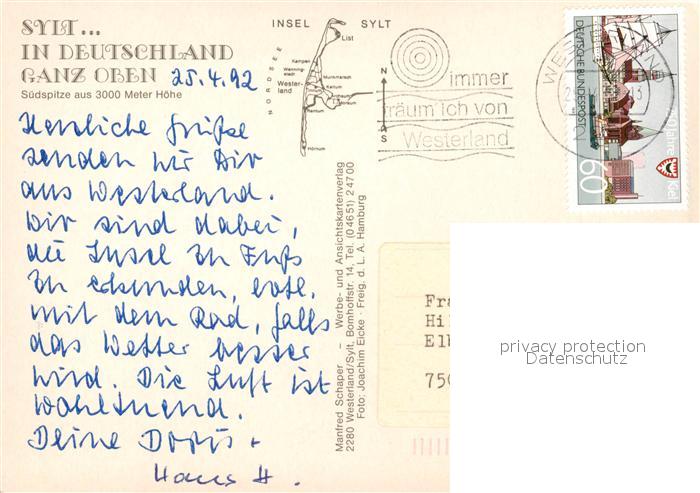 SYLT...
IN DEUTSCHLAND
GANZ OBEN 25.4.92
Südspitze aus 3000 Meter Höhe
Herzliche Grüße
senden wir Dir
aus Westerland.
Wir sind dabei,
die Insel zu Fuß
zu erkunden, evtl.
mit dem Rad, falls
das Wetter besser
wird. Die Luft ist
wohltuend.
Deine Doris +
Hans H.
INSEL SYLT
NORDSEE
List
Kampen
Wenning-
stadt
Wester-
land
Munkmarsch
Keitum
Archsum
Morsum
Rantum
Hörnum
N
S
immer
träum' ich von
Westerland
WESTERLAND
DEUTSCHE BUNDESPOST
60
Jahre Kiel
Manfred Schaper – Werbe- und Ansichtskartenverlag
2280 Westerland/Sylt, Bomhoffstr. 14, Tel. (04651) 24700
Foto: Joachim Eicke · Freig. d. L. A. Hamburg
Fra
Hil
Elb
750
privacy protection
Datenschutz